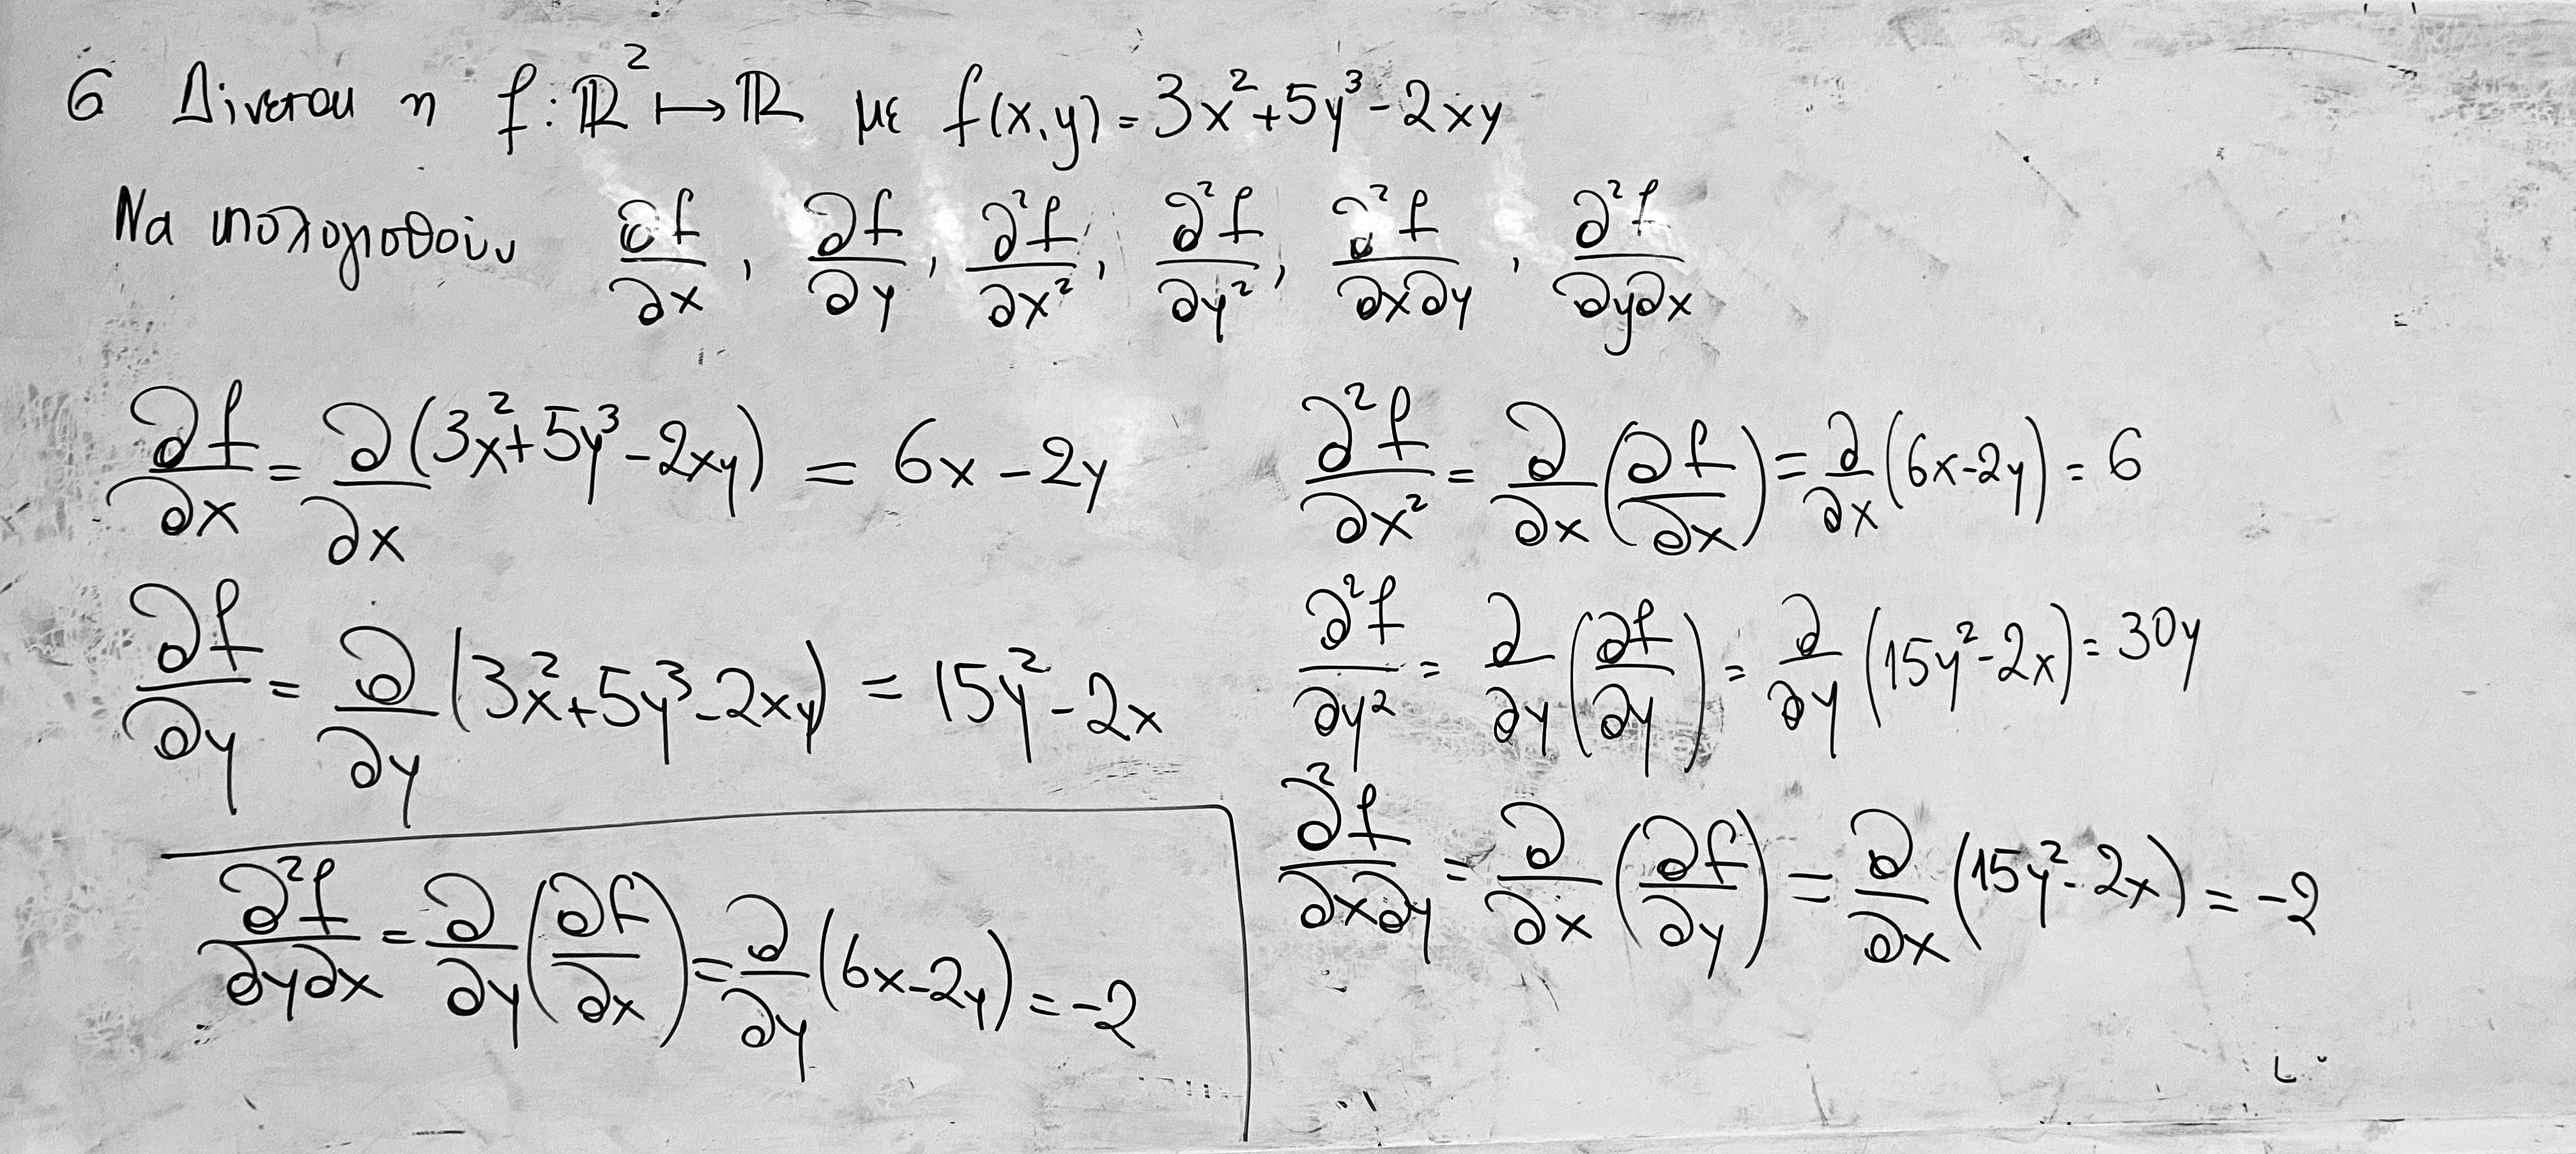 6 Δίνεται η f: ℝ² ↦ ℝ με f(x,y) = 3x²+5y³-2xy
Να υπολογισθούν ∂f/∂x, ∂f/∂y, ∂²f/∂x², ∂²f/∂y², ∂²f/∂x∂y, ∂²f/∂y∂x
∂f/∂x = ∂/∂x (3x²+5y³-2xy) = 6x-2y
∂f/∂y = ∂/∂y (3x²+5y³-2xy) = 15y²-2x
∂²f/∂y∂x = ∂/∂y (∂f/∂x) = ∂/∂y (6x-2y) = -2
∂²f/∂x² = ∂/∂x (∂f/∂x) = ∂/∂x (6x-2y) = 6
∂²f/∂y² = ∂/∂y (∂f/∂y) = ∂/∂y (15y²-2x) = 30y
∂²f/∂x∂y = ∂/∂x (∂f/∂y) = ∂/∂x (15y²-2x) = -2